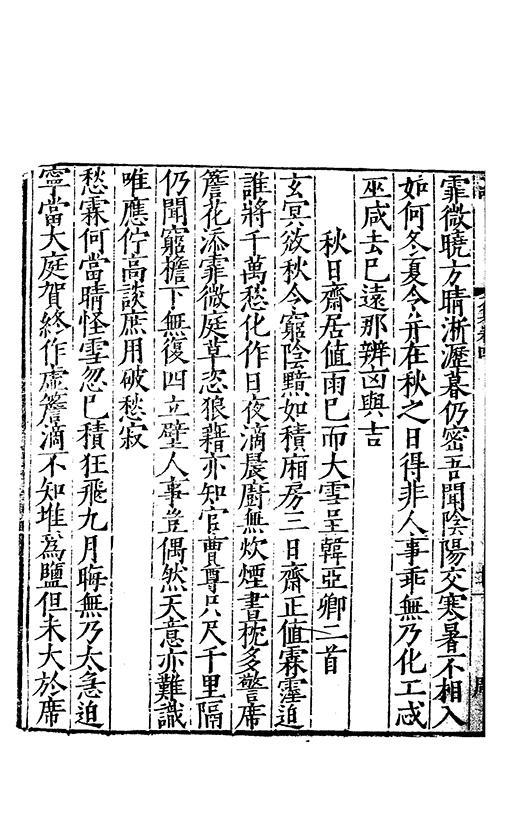 霏微曉方晴淅瀝暮仍密吾聞陰陽交寒暑不相入
如何冬夏令并在秋之日得非人事乖無乃化工忒
巫咸去已遠那辨凶與吉
秋日齋居值雨已而大雪呈韓亞卿二首
玄冥效秋令窮陰黯如積廂房三日齋正值霖霪迫
誰將千萬愁化作日夜滴晨廚無炊煙晝枕多警席
簷花添霏微庭草恣狼藉亦知官曹尊只尺千里隔
仍聞窮檐下無復四立壁人事豈偶然天意亦難識
唯應佇高談庶用破愁寂
愁霖何當晴怪雪忽已積狂飛九月晦無乃太急迫
寧當大庭賀終作虛簷滴不知堆為鹽但未大於席